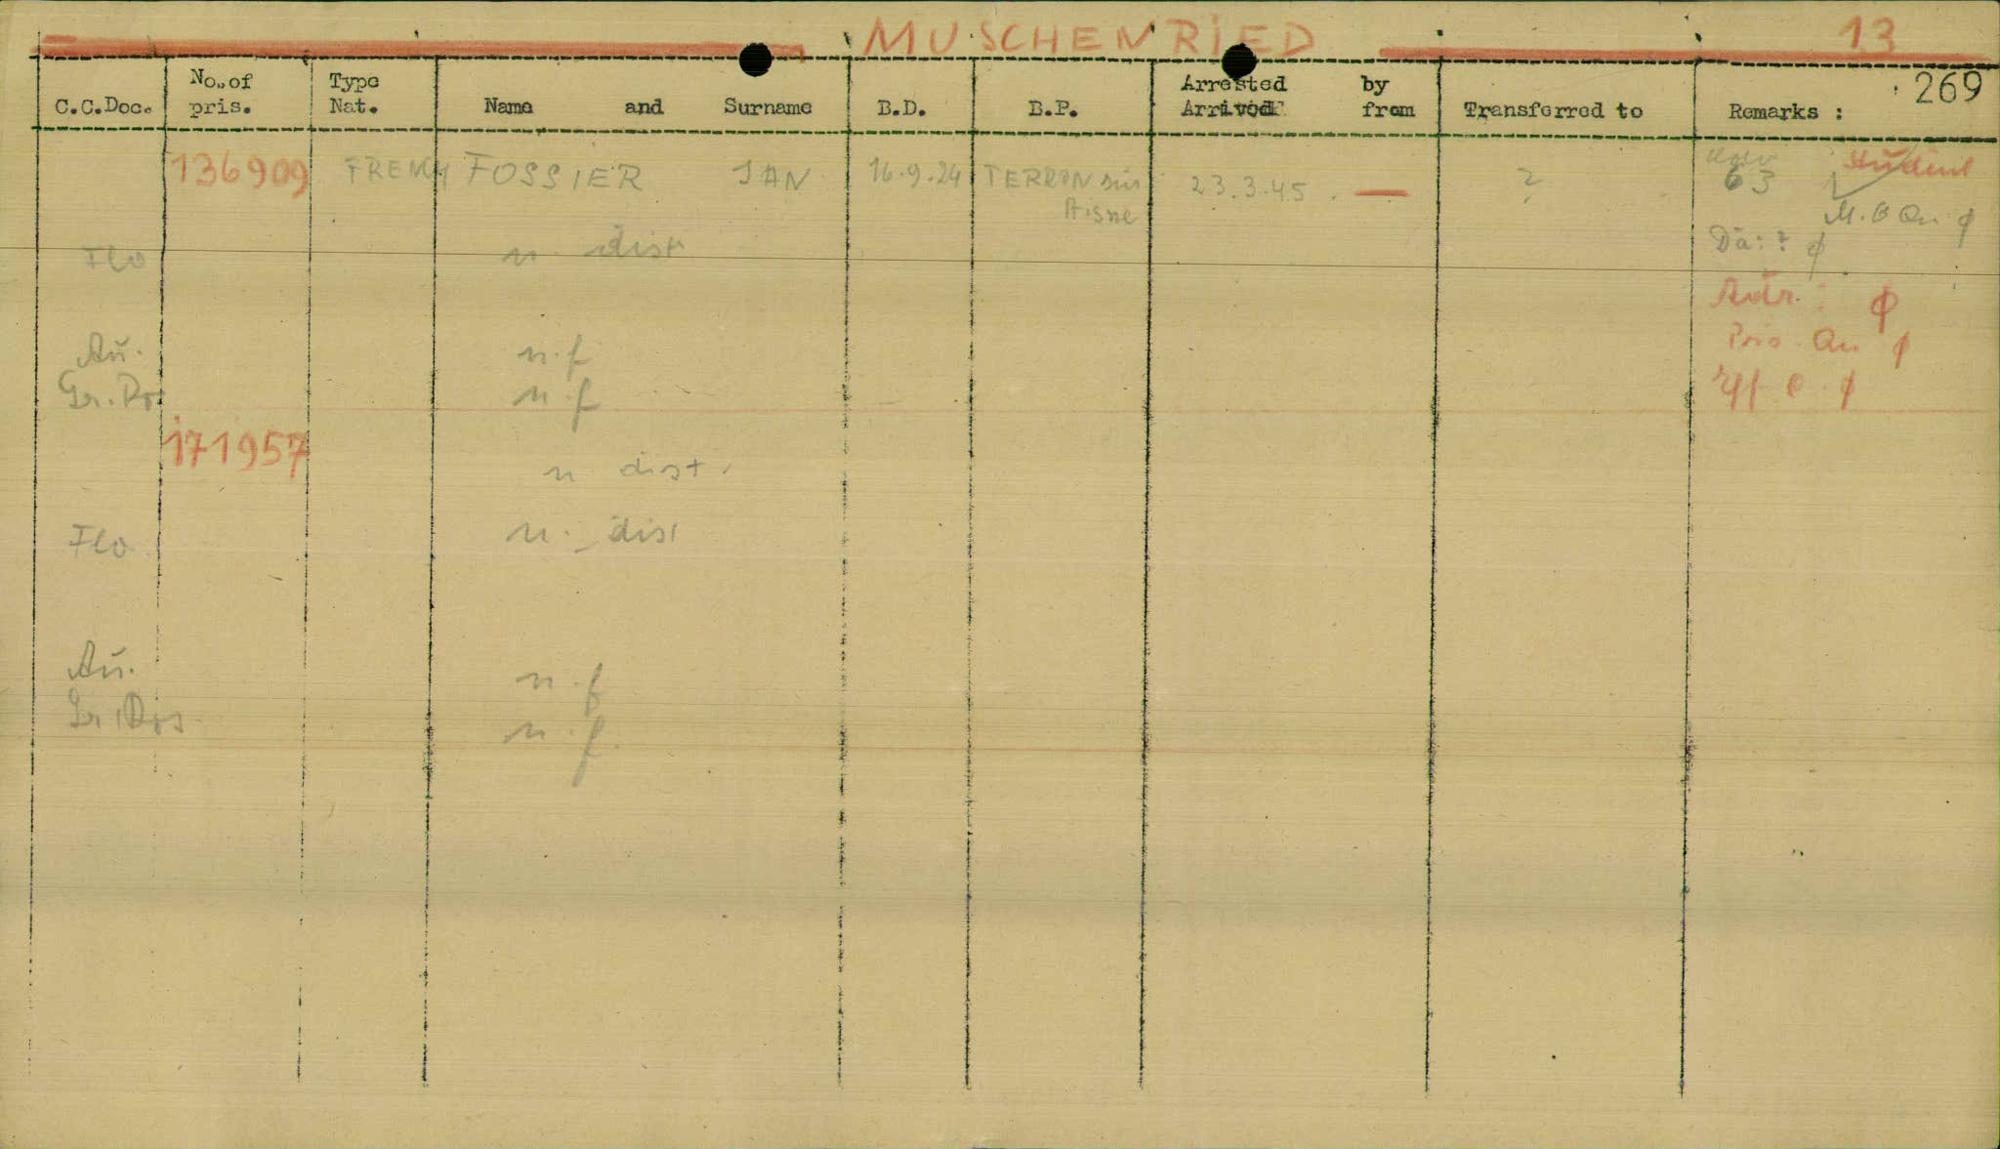 MUSCHENRIED 13
269
C.C.Doc. No. of pris. Type Nat. Name and Surname B.D. B.P. Arrested by Arrived from Transferred to Remarks :
136909 FRENCH FOSSIER JAN 16.9.24 TERRON sur Aisne 23.3.45. — ? 63 Student
M.B Qu ϕ
Flo n. dist Da: ? ϕ
Adr. : ϕ
Au. n.f Pris. Qu ϕ
Gr.Ros n.f ϕ
171957
n dist.
Flo n. dist
Au. n.f
Gr.Ros n.f.